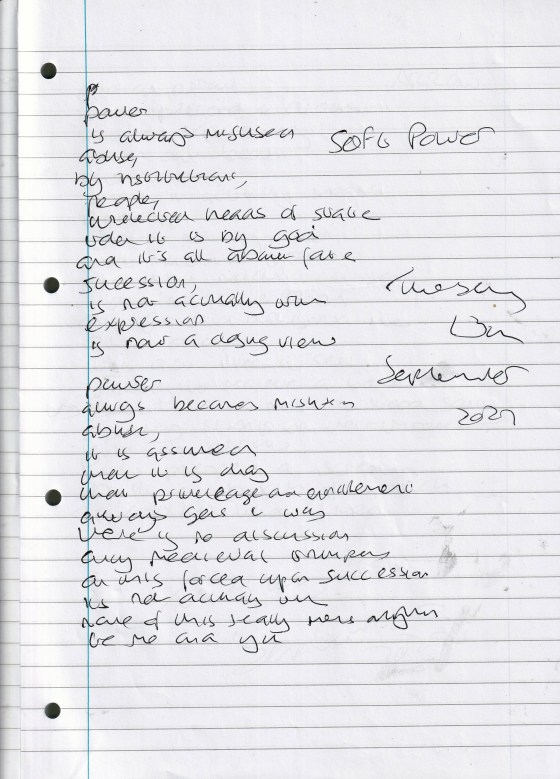 Soft Power
power
is always misused
abuse,
by institutions,
people,
unelected heads of state
order it is by god
and it's all about fate
sucession,
is not actually
expression
is now a view
Tuesday
September
power
always becomes
abuse,
it is assumed
that it is okay
that priviledge and entitlement
always gets way
there is no discussion
only medieval trumpets
on this forced upon succession
its not actually
none of this really
be me and you